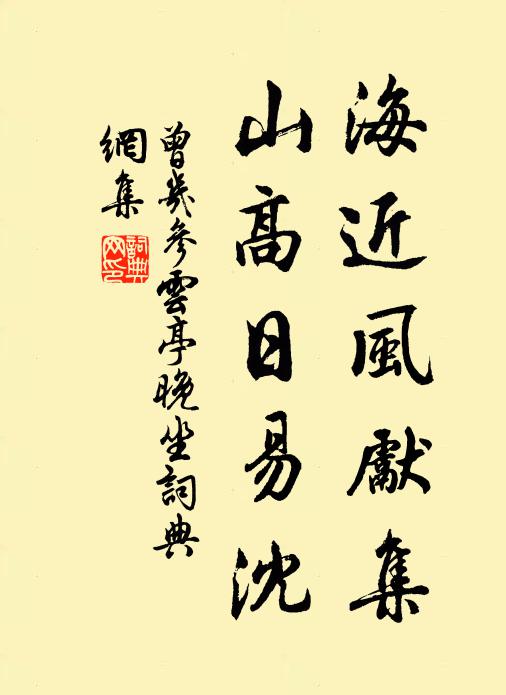 海近風獻集
山高日易沈
曾幾參雲亭晚坐詞典
網集
詞典
网印